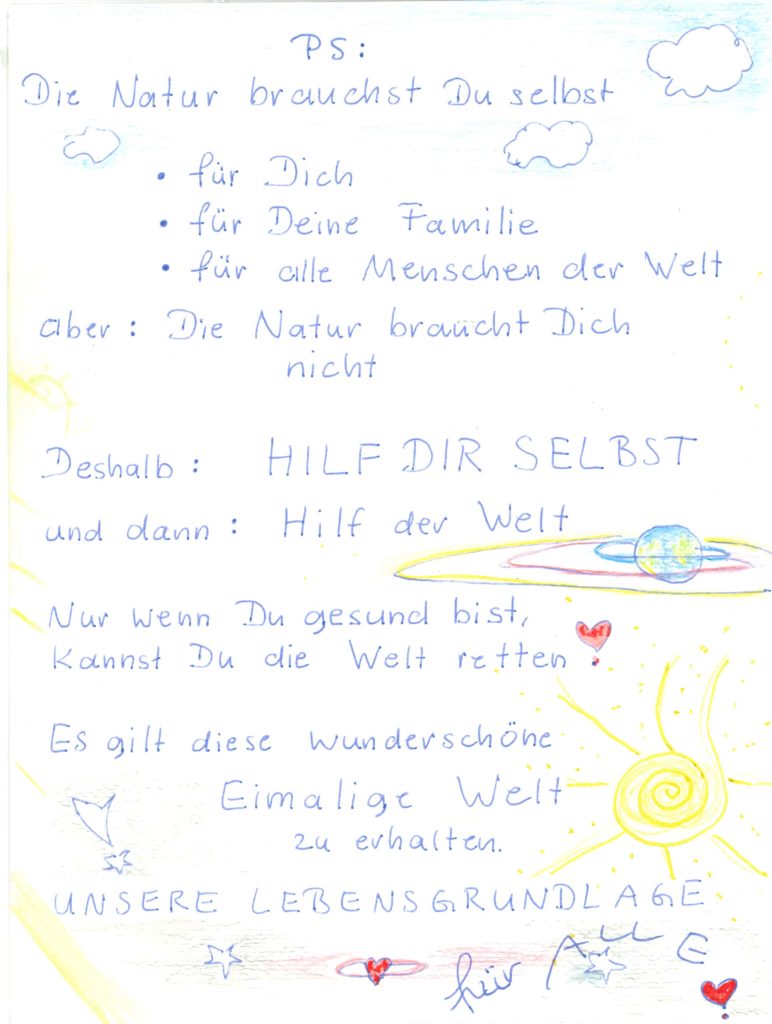 PS:
Die Natur brauchst Du selbst
• für Dich
• für Deine Familie
• für alle Menschen der Welt
aber: Die Natur braucht Dich
nicht
Deshalb: HILF DIR SELBST
und dann: Hilf der Welt
Nur wenn Du gesund bist,
Kannst Du die Welt retten!
Es gilt diese wunderschöne
Eimalige Welt
zu erhalten.
UNSERE LEBENSGRUNDLAGE
für ALLE